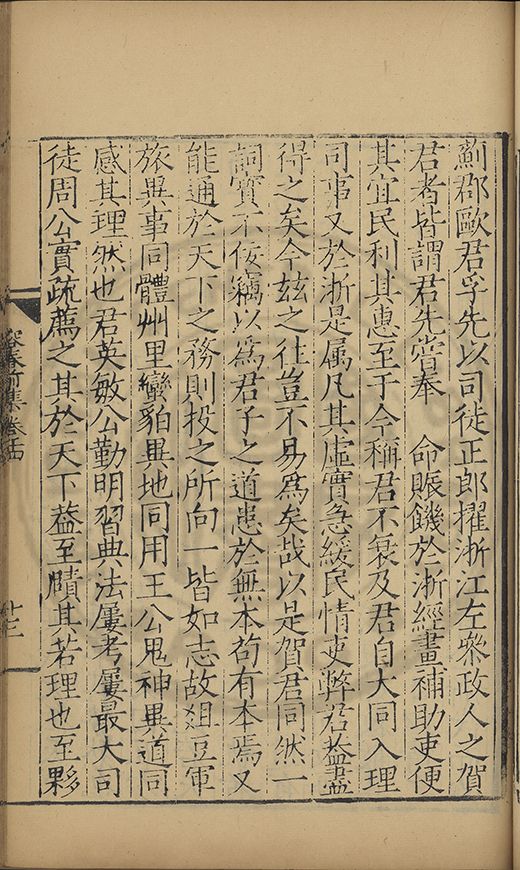 薊郡歐君孚先以司徒正郎擢浙江左叅政人之賀
君者皆謂君先嘗奉　命賑饑於浙經畫補助吏便
其宜民利其惠至于今稱君不衰及君自大同入理
司事又於浙是属凡其虛實急緩民情吏弊君葢盡
得之矣今玆之往豈不易爲矣哉以是賀君同然一
詞實不佞竊以爲君子之道患於無本苟有本焉又
能通於天下之務則投之所向一皆如志故俎豆軍
旅異事同體州里蠻貊異地同用王公鬼神異道同
感其理然也君英敏公勤明習典法屢考屢最大司
徒周公實疏薦之其於天下葢至賾其若理也至夥
容春 集 卷 
十三